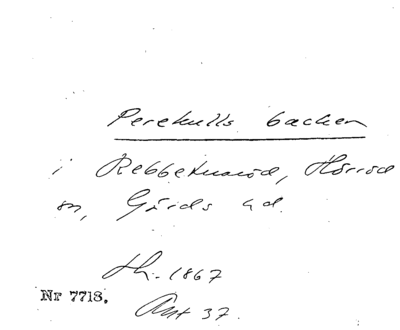 Perekulls backen
i Rebbetuaröd, Hörröd
sn, Gärds hd.
th. 1867
Nr 7718.
Ant 37.